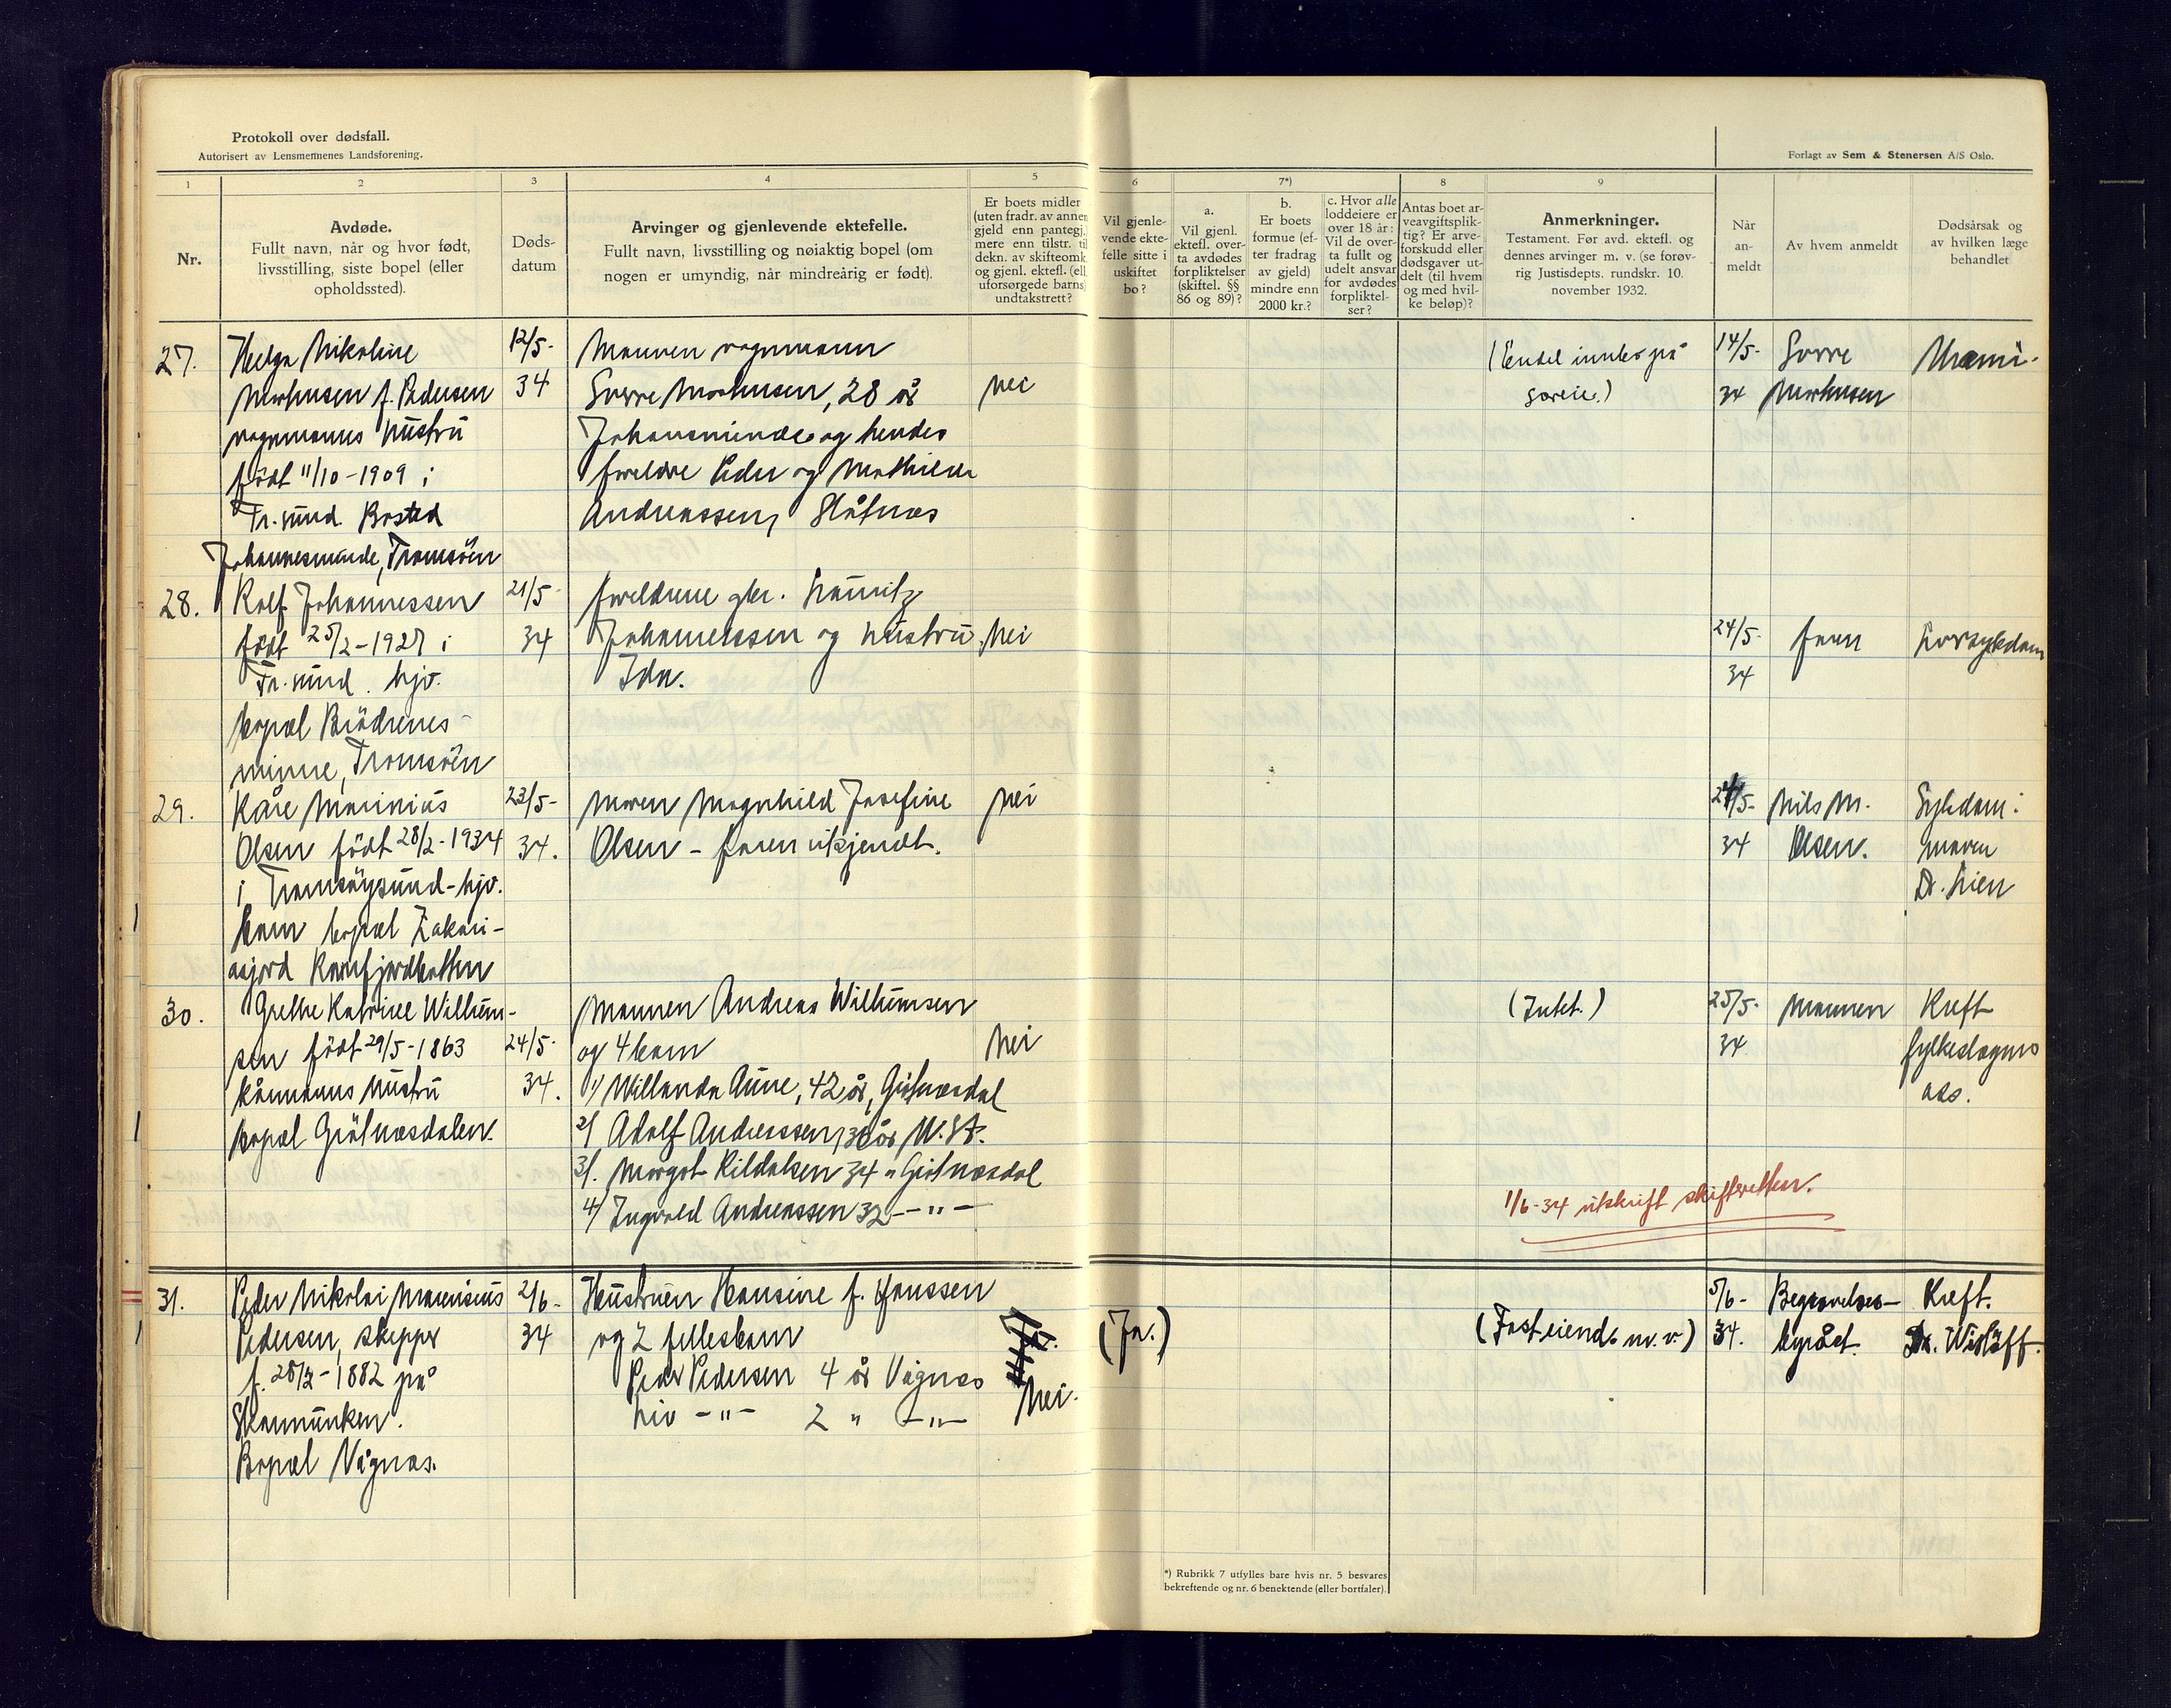 Protokoll over dødsfall.
Autorisert av Lensmennenes Landsforening.
Forlagt av Sem & Stenersen A/S Oslo.
1 2 3 4 5 6 7*) 8 9
Nr.
Avdøde.
Fullt navn, når og hvor født,
livsstilling, siste bopel (eller
opholdssted).
Døds-
datum
Arvinger og gjenlevende ektefelle.
Fullt navn, livsstilling og nøiaktig bopel (om
nogen er umyndig, når mindreårig er født).
Er boets midler
(uten fradr. av annen
gjeld enn pantegj.)
mere enn tilstr. til
dekn. av skifteomk.
og gjenl. ektef. (ell.
uforsørgede barns)
undtakstrett?
Vil gjenle-
vende ekte-
felle sitte i
uskiftet
bo?
a.
Vil gjenl.
ektefl. over-
ta avdødes
forpliktelser
(skiftel. §§
86 og 89)?
b.
Er boets
formue (ef-
ter fradrag
av gjeld)
mindre enn
2000 kr.?
c. Hvor alle
loddeiere er
over 18 år:
Vil de over-
ta fullt og
udelt ansvar
for avdødes
forpliktel-
ser?
Antas boet ar-
veavgiftsplik-
tig? Er arve-
forskudd eller
dødsgaver ut-
delt (til hvem
og med hvil-
ke beløp)?
Anmerkninger.
Testament. Før avd. ektefl. og
dennes arvinger m. v. (se forøv-
rig Justisdepts. rundskr. 10.
november 1932.
Når
an-
meldt
Av hvem anmeldt
Dødsårsak og
av hvilken læge
behandlet
27.
Helga Nikoline
Markusen f. Pedersen
vognmanns hustru
født 11/10-1909 i
Tr.sund. Bosted
Johannesminde, Tromsöen
12/5-
34
Mannen vognmann
Sverre Markusen, 28 år
Johansminde og hendes
foreldre Peder og Mathilde
Andreassen, Slåtnæs
nei
(Endel innbo på
14/5-
34
Sverre
Markusen
28.
Rolf Johannessen
født 25/2-1927 i
Tr.sund. hjv.
bopæl Brödrenes-
minne, Tromsöen
21/5-
34
foreldrene gbr. Lauritz
Johannessen og hustru
Ida.
Nei
24/5-
34
faren
29.
Kåre Marinius
Olsen födt 28/2-1934
i Tromsöysund-hjv.
barn bopæl Zakari-
asjord Ramfjordbotten
23/5-
34.
Maren Magnhild Josefine
Olsen - faren utkjendt.
Nei
24/5-
34
Nils M.
Olsen.
Sykdom i
maven
Dr. Lien
30.
Grethe Katrine Willum-
sen födt 29/5-1863
kårmanns hustru
bopæl Grötnæsdalen.
24/5-
34.
Mannen Andreas Willumsen
og 4 barn
1/ Willanda Aune, 42 år, Grötnæsdal
2/ Adolf Andreassen, 36 år U.S.A.
3/. Margot Kildalsen 34 " Grötnæsdal
4/ Ingvald Andreassen 32 - " -
Nei
(Intet.)
25/5-
34
Mannen
Kreft
fylkeslægens
ass.
1/6-34 utskrift skifteretten.
31.
Peder Nikolai Marensius
Pedersen, skipper
f. 28/2-1882 på
Skarmunken.
Bopæl Vågnæs.
2/6-
34
Hustruen Hansine f. Hanssen
og 2 fellesbarn
Peder Pedersen 4 år Vågnæs
Liv - " - 2 " - " -
Nei.
(Ja.)
(Fast eiend. m.v.)
5/6-
34.
Begravelses-
byrået.
Kreft.
Dr. Wislöff.
*) Rubrikk 7 utfylles bare hvis nr. 5 besvares
bekreftende og nr. 6 benektende (eller bortfaler).